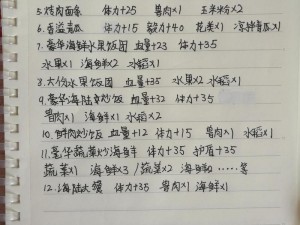 5.烤肉面条 体力+25 兽肉×1 玉米粉×2
6.香溢青瓜 体力+15 毅力+40 花类×1 凉拌青瓜×1
7.豪华海鲜水果饭团 血量+23 体力+35
水果×1 海鲜×2 水稻×1
8.大份水果饭团 血量+35 水果×2 水稻×1
9.豪华海陆烹炒饭 血量+32 体力+35
兽肉×1 海鲜×1 水稻×1
10.鲜肉炒饭 血量+12 体力+15 兽肉×1 水稻×1
11.豪华蔬菜炒海鲜 体力+35 护盾+35
蔬菜×1 海鲜×3 /蔬菜×2 海鲜×2 ......等
12.海陆大餐 体力+35 兽肉×1 海鲜×1